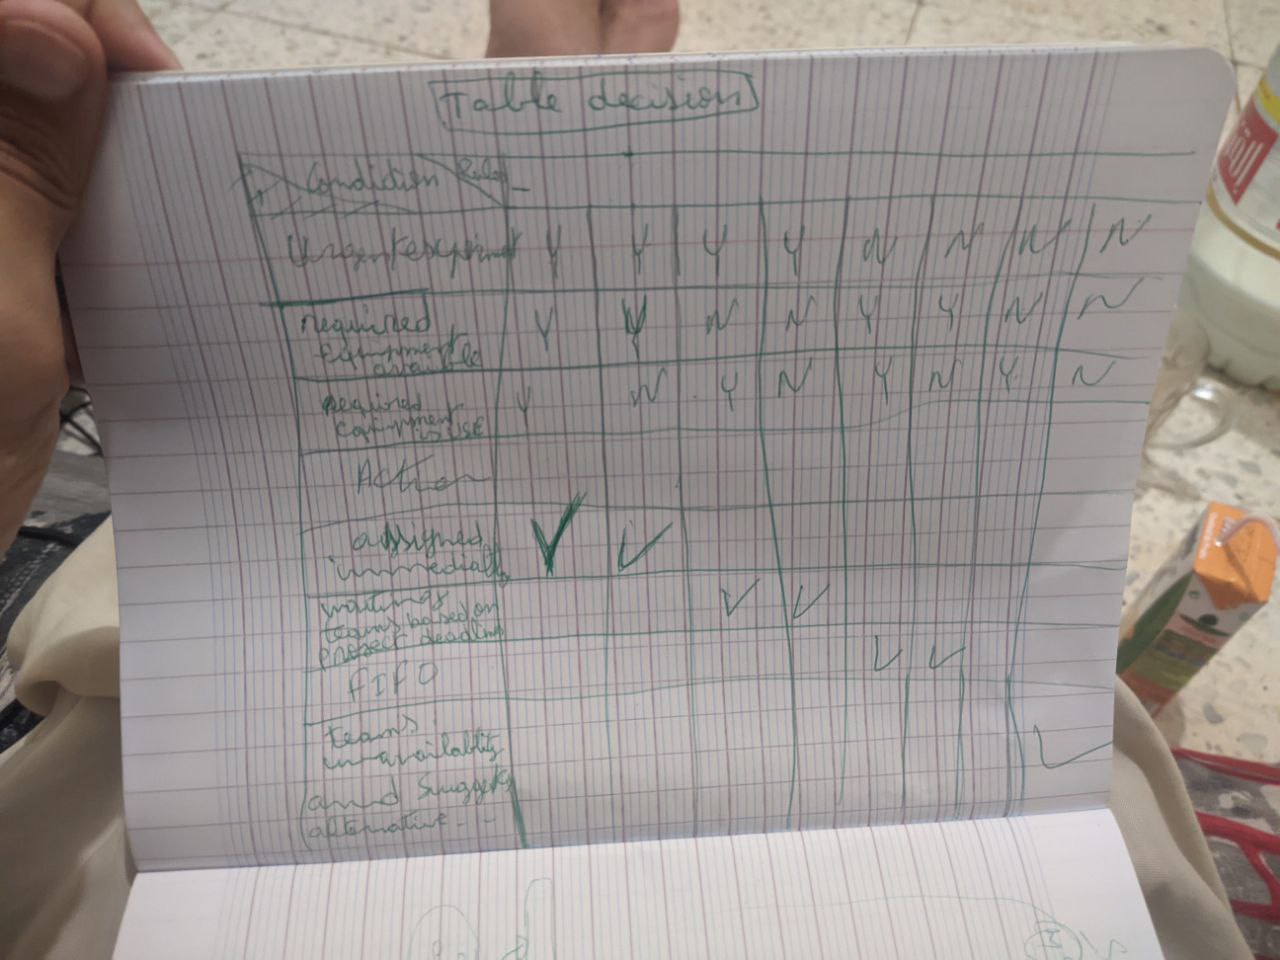 Table decision
Condition Rules
Urgent Y Y Y Y N N N N
required Equipment available Y Y N N Y Y N N
required Equipment is use Y N Y N Y N Y N
Action
assigned immediatly ✓ ✓
waiting teams based on project deadline ✓ ✓
FIFO ✓ ✓
team's
unavailablity ✓
and Suggests
alternative - -